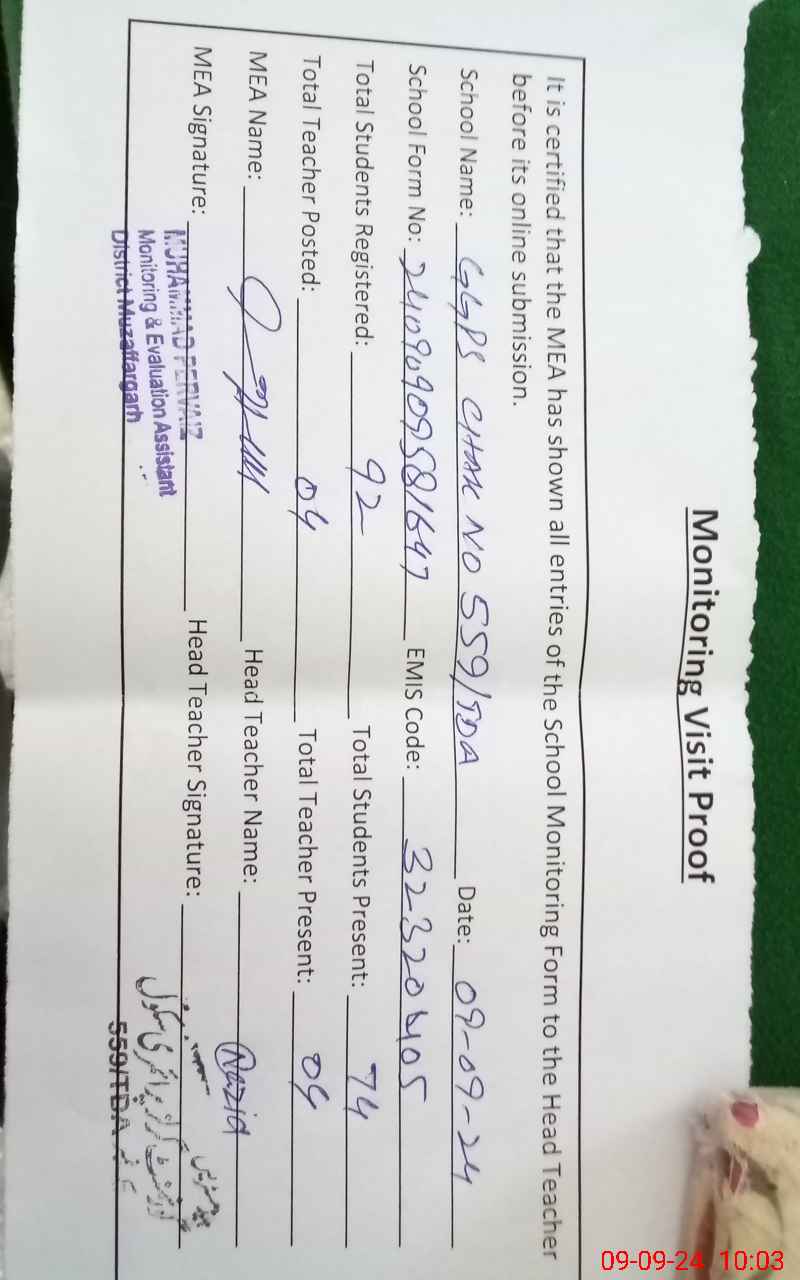 Monitoring Visit Proof
It is certified that the MEA has shown all entries of the School Monitoring Form to the Head Teacher
before its online submission.
School Name: GGPS CHAK NO 559/TDA Date: 09-09-24
School Form No: 24090909581647 EMIS Code: 32320405
Total Students Registered: 92 Total Students Present: 74
Total Teacher Posted: 04 Total Teacher Present: 04
MEA Name: Head Teacher Name: Nazia
MEA Signature: Head Teacher Signature:
MUHAMMAD PERVAIZ
Monitoring & Evaluation Assistant
District Muzaffargarh
ہیڈ مسٹریس
گورنمنٹ گرلز پرائمری سکول
559/TDA
09-09-24 10:03